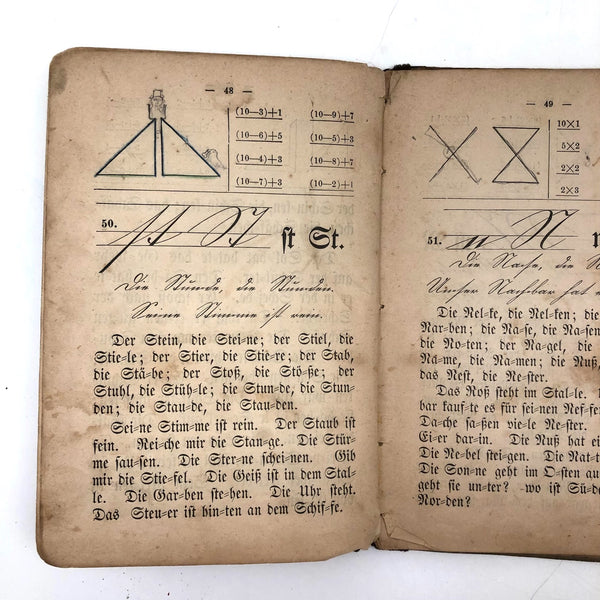 — 48 —
(10—3)+1 (10—9)+7
(10—6)+5 (10—5)+3
(10—4)+3 (10—8)+7
(10—7)+3 (10—2)+1
50. ſt St ſt St.
Die Stun-de, die Stun-den.
Sei-ne Stim-me iſt rein.
Der Stein, die Stei-ne; der Stiel, die
Stie-le; der Stier, die Stie-re; der Stab,
die Stä-be; der Stoß, die Stö-ße; der
Stuhl, die Stüh-le; die Stun-de, die Stun-
den; die Stau-de, die Stau-den.
Sei-ne Stim-me iſt rein. Der Staub iſt
fein. Rei-che mir die Stan-ge. Die Stür-
me ſau-ſen. Die Ster-ne ſchei-nen. Gib
mir die Stie-fel. Die Geiß iſt in dem Stal-
le. Die Gar-ben ſte-hen. Die Uhr ſteht.
Das Steu-er iſt hin-ten an dem Schif-fe.
— 49 —
10×1
5×2
2×2
2×3
51. n N n
Die Na-ſe, die N
Un-ſer Nach-bar hat e
Die Nel-ke, die Nel-ken; die
Nar-ben; die Na-ſe, die Na-ſen
die No-ten; der Na-gel, die N
Na-me, die Na-men; die Nuß,
das Neſt, die Ne-ſter.
Das Roß ſteht im Stal-le.
bar kauf-te es für ſei-nen Nef-fe
Da-che ſa-ßen vie-le Ne-ſter.
Ei-er dar-in. Die Nuß hat ei
Die Ne-bel ſtei-gen. Die Nat-t
Die Son-ne geht im O-ſten au
geht ſie un-ter? wo iſt Sü-de
Nor-den?